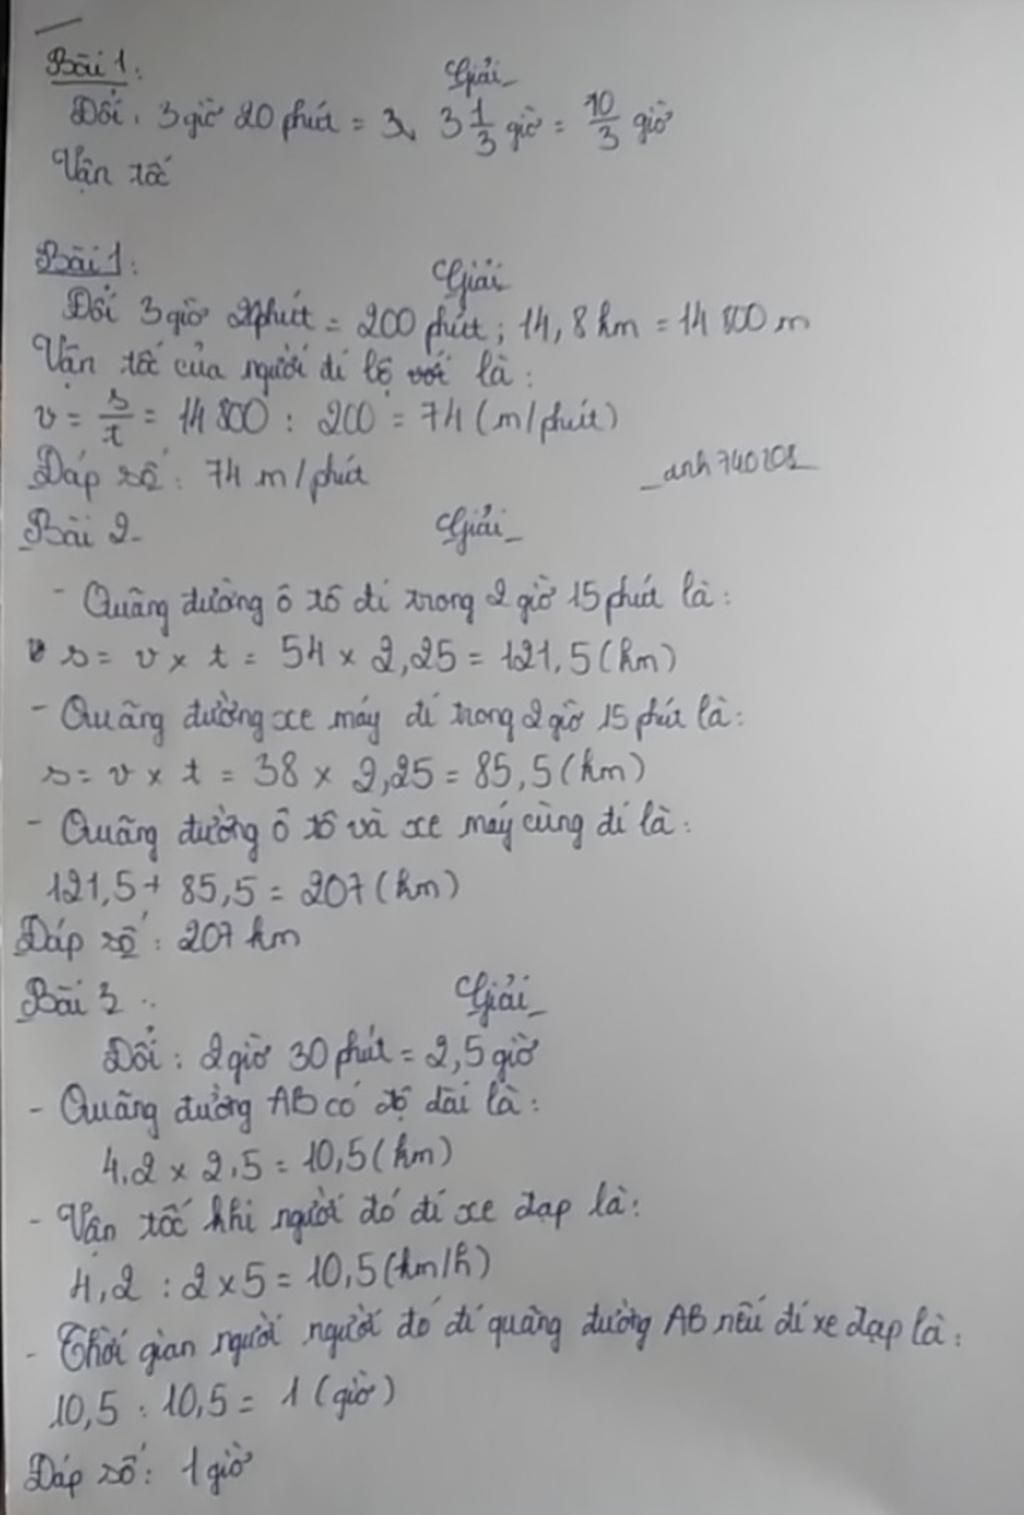 Bài 1:
Giải
Đổi: 3 giờ 20 phút = 3, 3 1/3 giờ = 10/3 giờ
Vận tốc
Bài 1:
Giải
Đổi 3 giờ 20 phút = 200 phút; 14,8 km = 14 800 m
Vận tốc của người đi bộ với là:
v = s/t = 14 800 : 200 = 74 (m/phút)
Đáp số: 74 m/phút
_anh740208_
Bài 2-
Giải
- Quãng đường ô tô đi trong 2 giờ 15 phút là:
s = v x t = 54 x 2,25 = 121,5 (km)
- Quãng đường xe máy đi trong 2 giờ 15 phút là:
s = v x t = 38 x 2,25 = 85,5 (km)
- Quãng đường ô tô và xe máy cùng đi là:
121,5 + 85,5 = 207 (km)
Đáp số: 207 km
Bài 3:
Giải
Đổi: 2 giờ 30 phút = 2,5 giờ
- Quãng đường AB có độ dài là:
4,2 x 2,5 = 10,5 (km)
- Vận tốc khi người đó đi xe đạp là:
4,2 : 2 x 5 = 10,5 (km/h)
- Thời gian người người đó đi quãng đường AB nếu đi xe đạp là:
10,5 : 10,5 = 1 (giờ)
Đáp số: 1 giờ